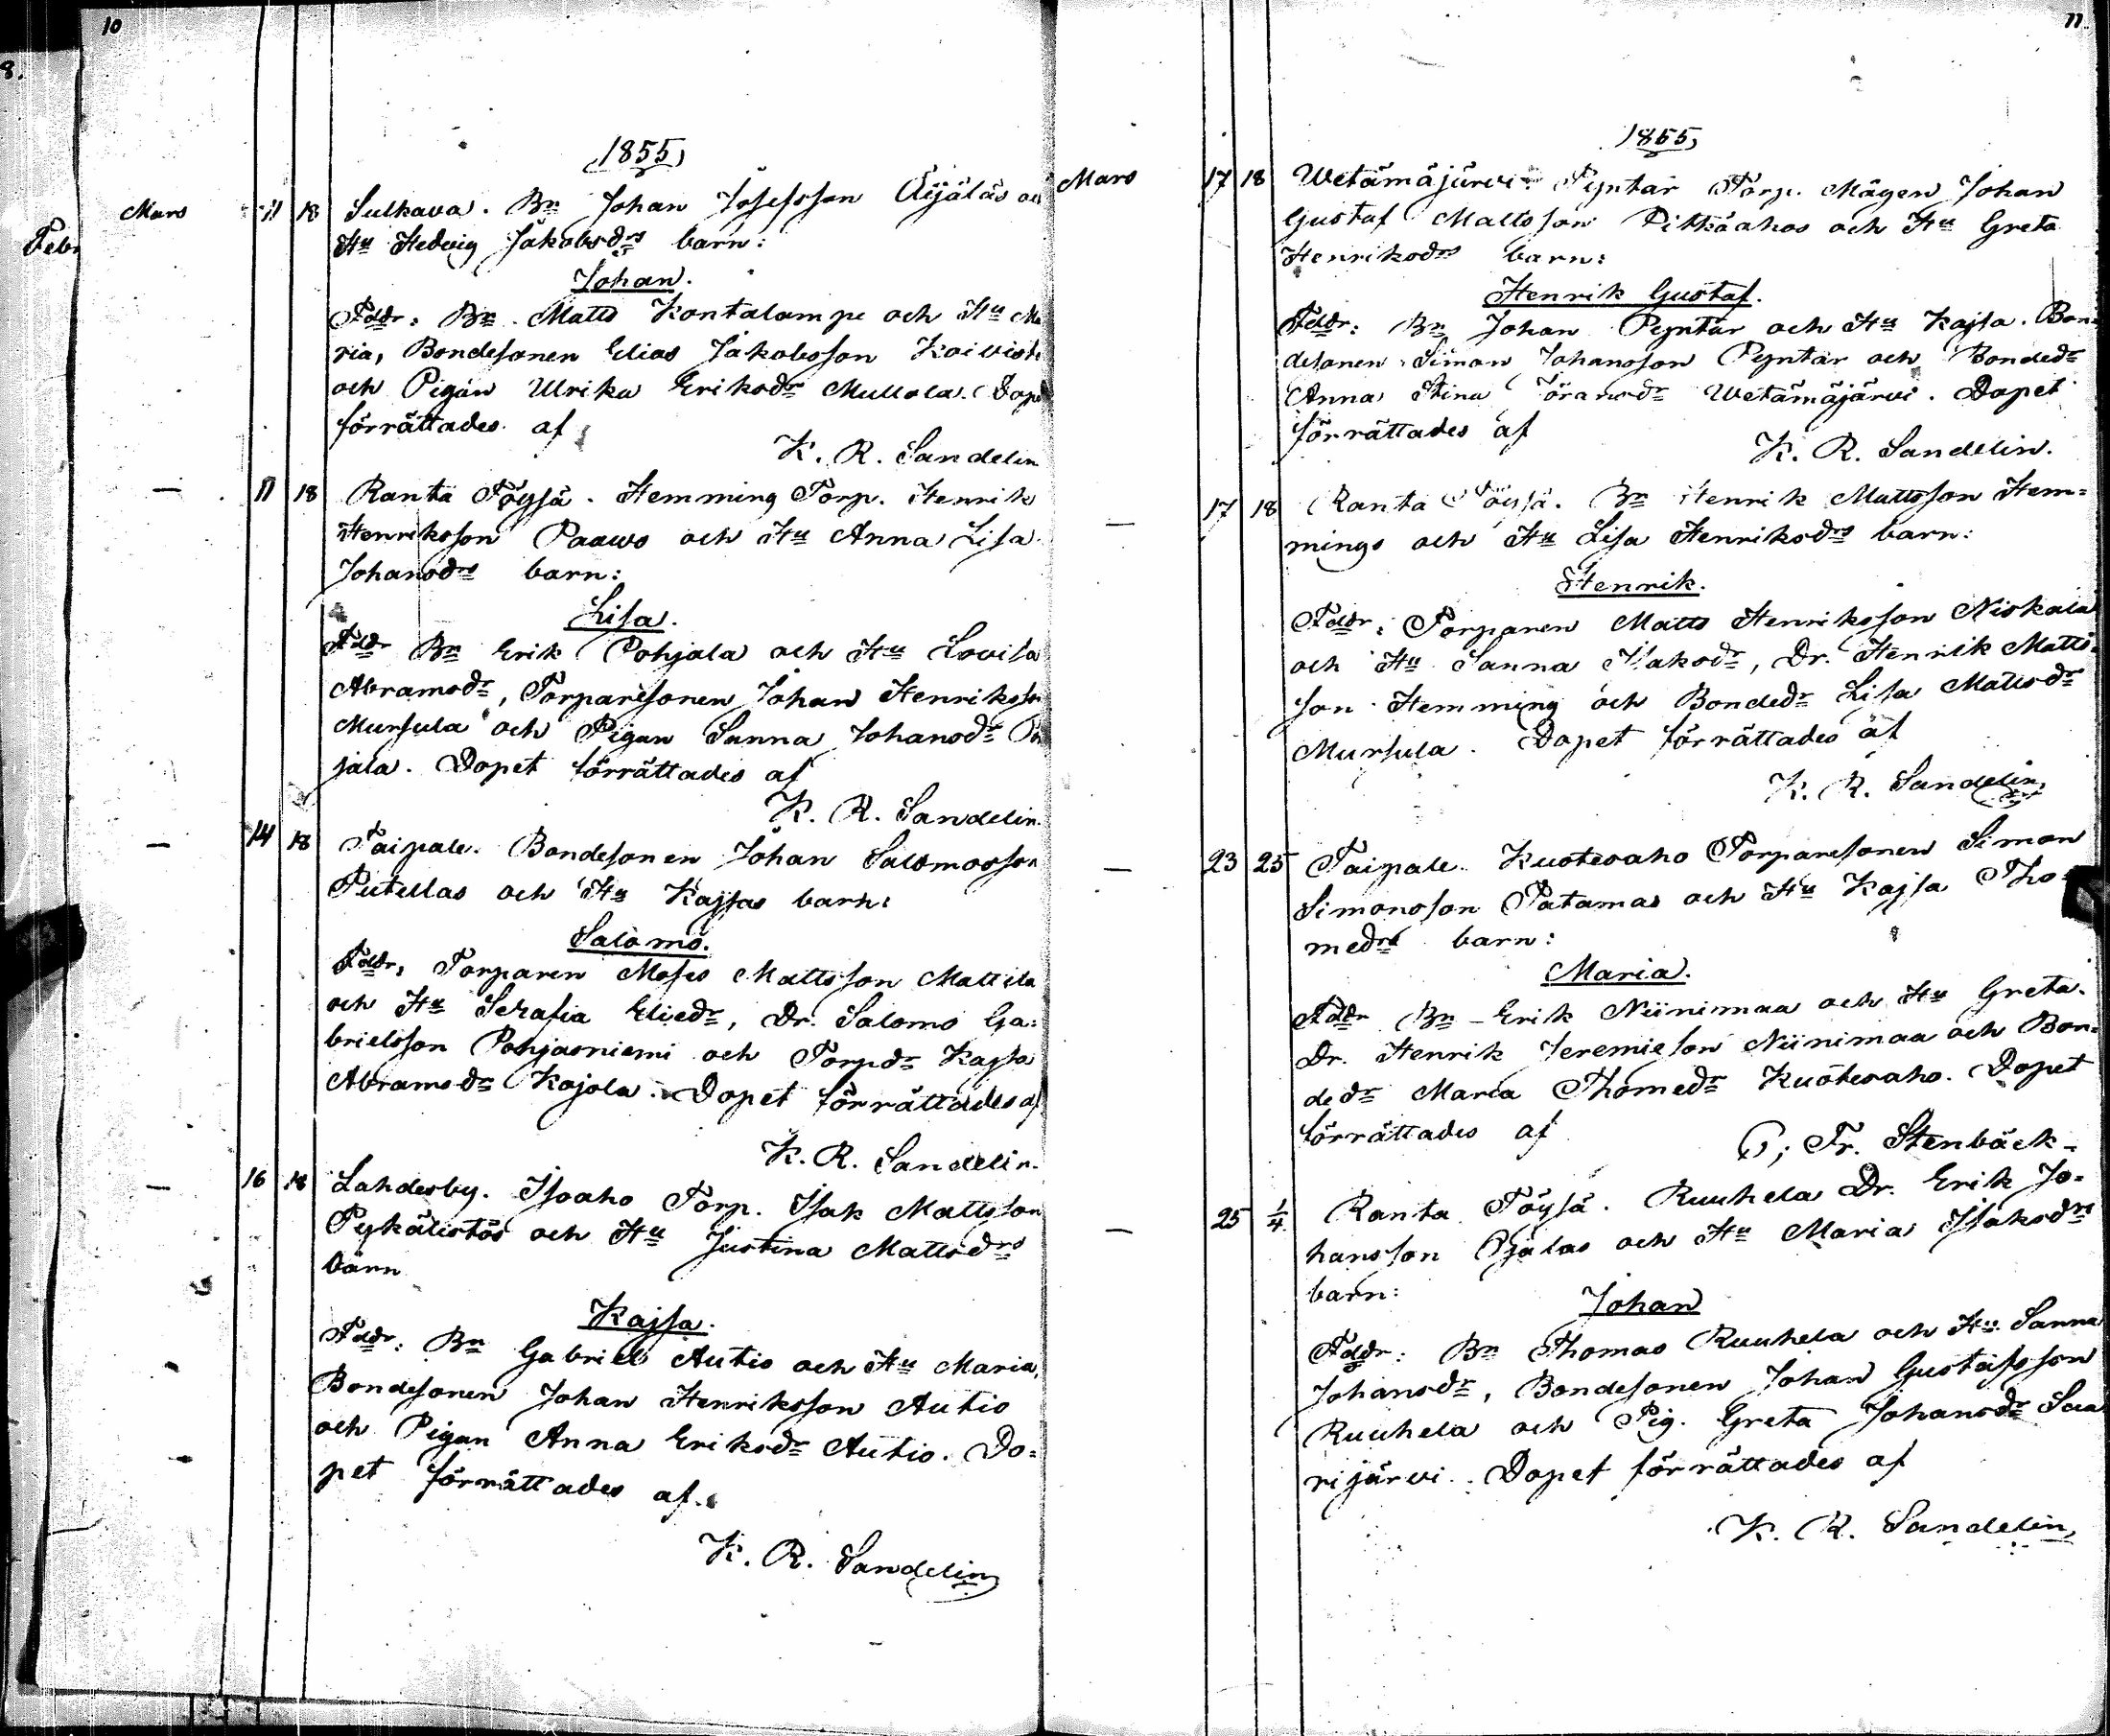 10
8.
Febr
1855
Mars 11 18 Sulkava. Bn Johan Josefsson Äijäläs och
Hu Hedvig Jakobsdrs barn:
Johan.
Fddr: Bn Matts Kontalampe och Hu Ma
ria, Bondesonen Elias Jakobsson Koivisto
och Pigan Ulrika Eriksdr Mullola. Dop
förrättades af
K. R. Sandelin
— 11 18 Ranta Töysä. Hemming Torp. Henrik
Henriksson Paawo och Hu Anna Lisa
Johansdrs barn:
Lisa.
Fddr Bn Erik Pohjala och Hu Lovisa
Abramsdr, Torparesonen Johan Henriksson
Mursula och Pigan Sanna Johansdr Po
jala. Dopet förrättades af
K. R. Sandelin.
— 14 18 Taipale. Bondesonen Johan Salomosson
Putellas och Hu Kajsas barn:
Salomo.
Fddr: Torparen Moses Mattsson Mattila
och Hu Serafia Eliedr, Dr. Salomo Ga=
brielsson Pohjasniemi och Torpdr Kajsa
Abramsdr Kojola. Dopet förrättades af
K. R. Sandelin.
— 16 18 Lahdesby. Isoaho Torp. Isak Mattsson
Pykälistös och Hu Justina Mattsdrs
barn
Kajsa.
Fddr: Bn Gabriel Autio och Hu Maria,
Bondesonen Johan Henriksson Autio
och Pigan Anna Eriksdr Autio. Do=
pet förrättades af
K. R. Sandelin
11.
1855
Mars 17 18 Wetämäjärvi Pyntär Torp. Mågen Johan
Gustaf Mattsson Pitkäahos och Hu Greta
Henriksdrs barn:
Henrik Gustaf.
Fddr: Bn Johan Pyntär och Hu Kajsa. Bon=
desonen Simon Johansson Pyntär och Bondedr
Anna Stina Göransdr Wetämäjärvi. Dopet
förrättades af
K. R. Sandelin.
— 17 18 Ranta Töysä. Bn Henrik Mattsson Hem=
mings och Hu Lisa Henriksdrs barn:
Henrik.
Fddr: Torparen Matts Henriksson Niskala
och Hu Sanna Isaksdr, Dr. Henrik Matts=
son Hemming och Bondedr Lisa Mattsdr
Mursula. Dopet förrättades af
K. R. Sandelin
— 23 25 Taipale. Kuotesaho Torparesonen Simon
Simonsson Patamas och Hu Kajsa Tho=
medrs barn:
Maria.
Fddr Bn Erik Niinimaa och Hu Greta.
Dr. Henrik Jeremieson Niinimaa och Bon=
dedr Maria Thomedr Kuotesaho. Dopet
förrättades af
Fr. Stenbäck
— 25 1/4 Ranta Töysä. Ruuhela Dr. Erik Jo=
hansson Ojalas och Hu Maria Isaksdrs
barn:
Johan
Fddr: Bn Thomas Ruuhela och Hu Sanna
Johansdr, Bondesonen Johan Gustafsson
Ruuhela och Pig. Greta Johansdr Saa
rijärvi. Dopet förrättades af
K. R. Sandelin